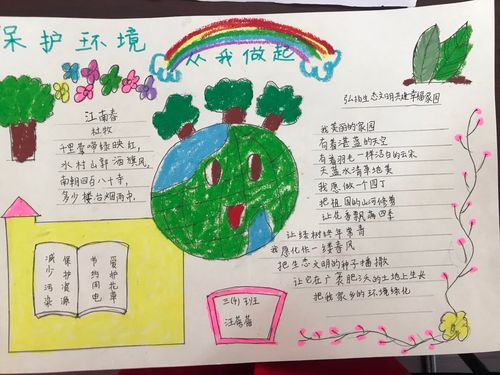 保护环境
从我做起
江南春
杜牧
千里莺啼绿映红,
水村山郭酒旗风,
南朝四百八十寺,
多少楼台烟雨中,
弘扬生态文明共建幸福家园
我美丽的家园
有着湛蓝的天空
有着羽毛一样洁白的云朵
天蓝水清草地美
我愿做一个园丁
把祖国的山河修剪
让花香飘满四季
让绿树映年常青
我愿化作一缕春风
把生态文明的种子播撒
让它在广袤肥沃的土地上生长
把我家乡的环境绿化
减少污染
保护资源
节约用电
爱护花草
三(4)班